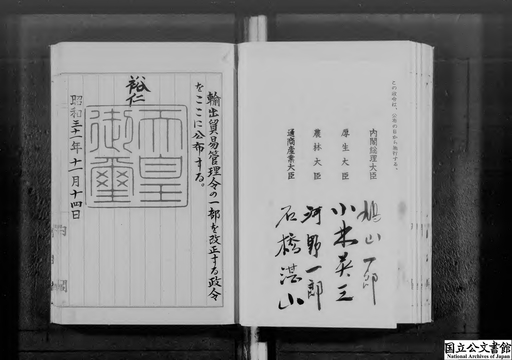 輸出貿易管理令の一部を改正する政令
をここに公布する。
裕仁
天皇
御璽
昭和三十一年十一月十四日
この政令は、公布の日から施行する。
内閣総理大臣 鳩山一郎
厚生大臣 小林英三
農林大臣 河野一郎
通商産業大臣 石橋湛山
国立公文書館
National Archives of Japan